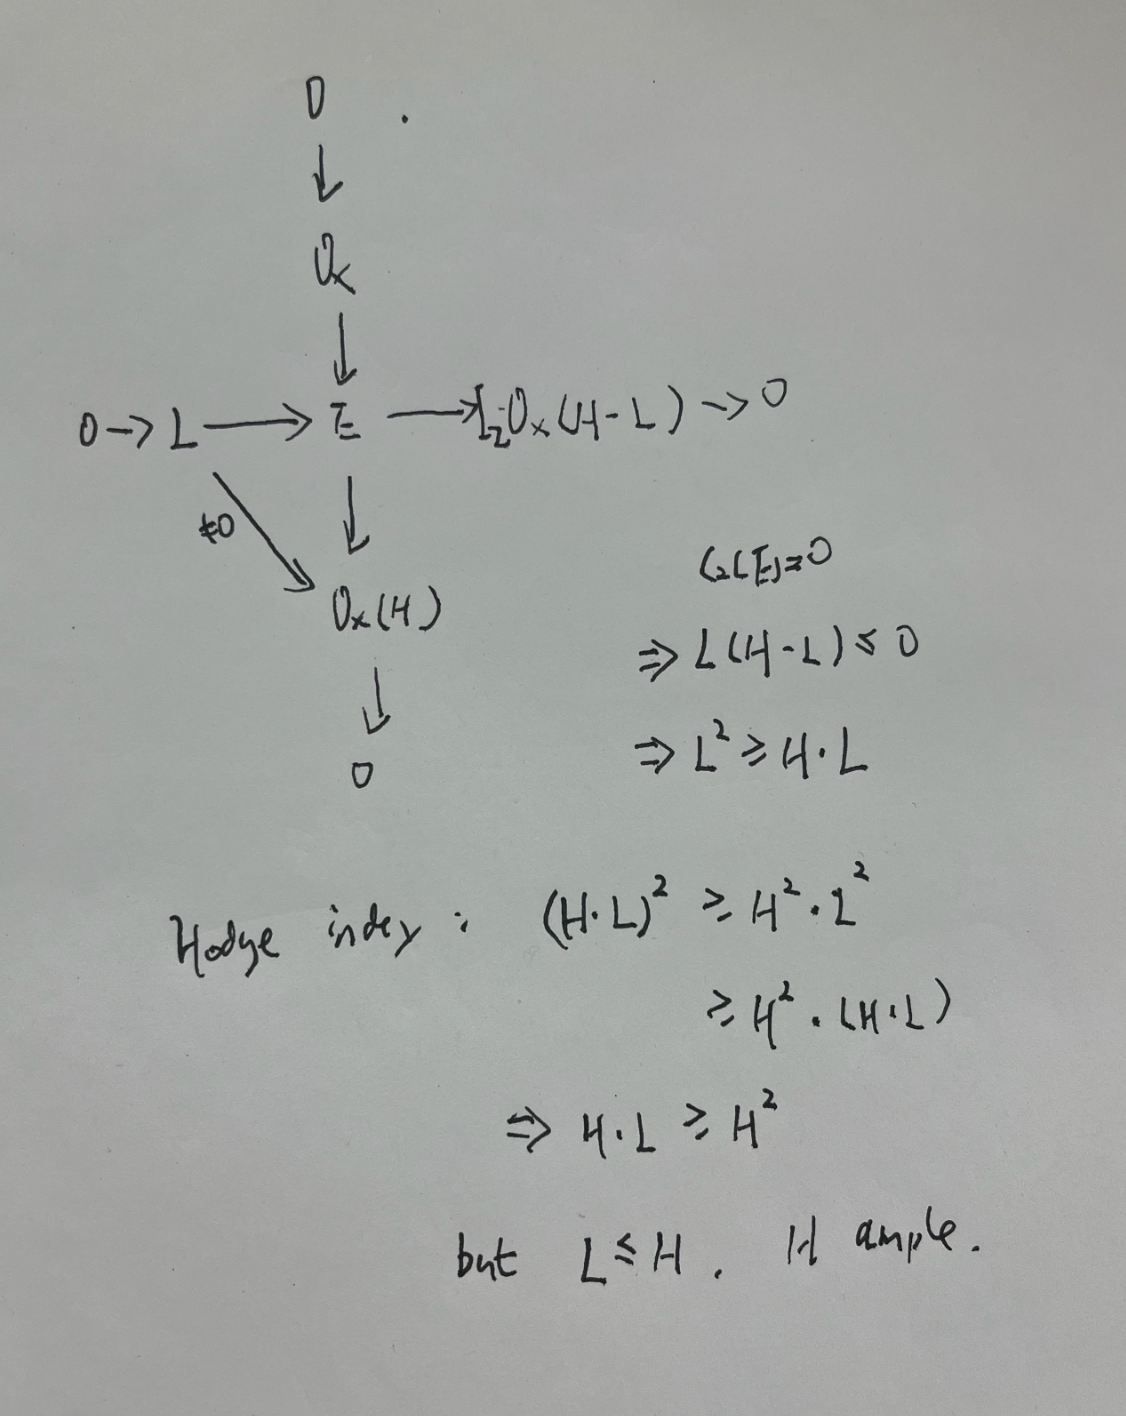 0
↓
O_X
↓
0 → L → E → I_Z O_X(H-L) → 0
≠0 ↘ ↓
O_X(H)
↓
0
C₂(E)=0
⇒ L(H-L) ≤ 0
⇒ L² ≥ H·L
Hodge index : (H·L)² ≥ H²·L²
≥ H²·(H·L)
⇒ H·L ≥ H²
but L ≤ H, H ample.